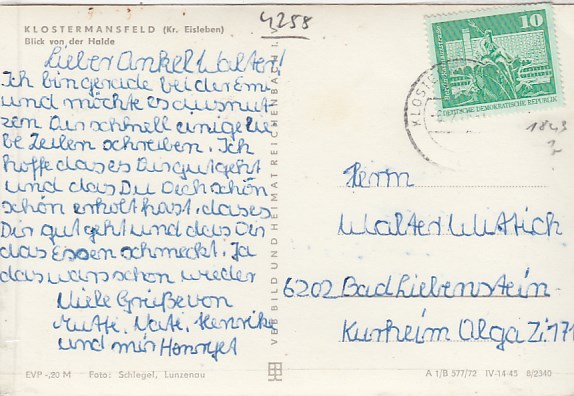 4258
KLOSTERMANSFELD (Kr. Eisleben)
Blick von der Halde
Lieber Onkel Walter!
Ich bin gerade bei der Emi
und möchte es ausnut-
zen Dir schnell einige lie
be Zeilen schreiben. Ich
hoffe das es Dir gut geht
und das Du Dich schön
schön erholt hast, das es
Dir gut geht und das Dir
das Essen schmeckt. Ja
das wars schon wieder
Viele Grüße von
Mutti, Vati, Henrike
und mir
VEB BILD UND HEIMAT REICHENBACH i. V.
10
DEUTSCHE DEMOKRATISCHE REPUBLIK
KLOSTER
1843
Herrn
Walter Wittich
6202 Bad Liebenstein
Kurheim Olga Zi 171
EVP -,20 M Foto: Schlegel, Lunzenau
A 1/B 577/72 IV-14-45 8/2340